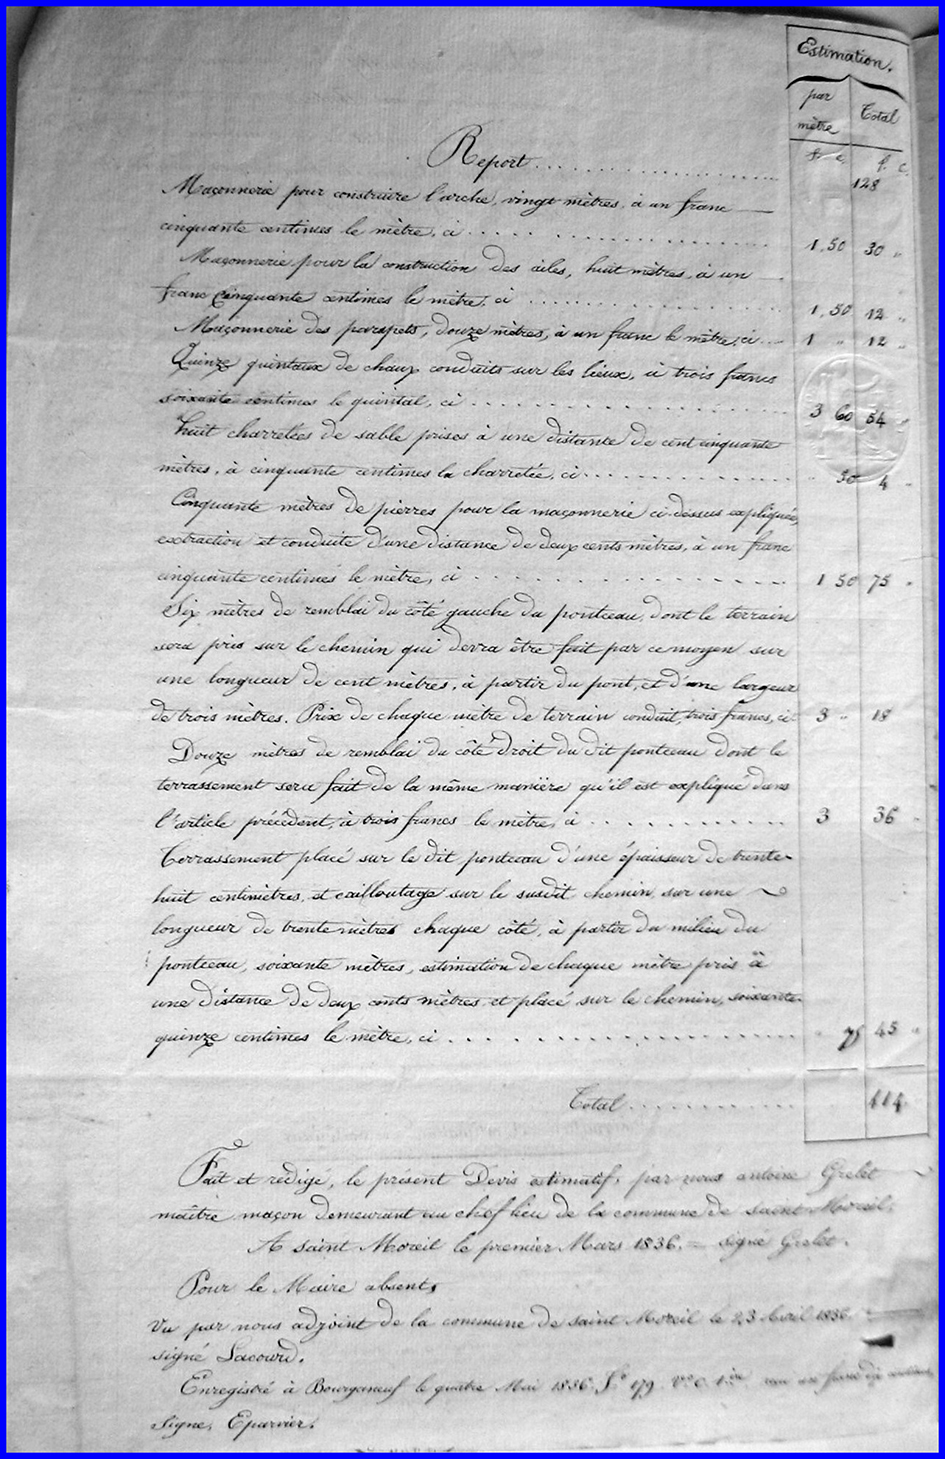 Estimation.
par mètre
Total
f. c.
f. c.
Report ............ 128
Maçonnerie pour construire l'arche, vingt mètres, à un franc
cinquante centimes le mètre, ci ........ 1,50 30 "
Maçonnerie pour la construction des ailes, huit mètres, à un
franc cinquante centimes le mètre, ci ........ 1,50 12 "
Maçonnerie des parapets, douze mètres, à un franc le mètre, ci ... 1 " 12 "
Quinze quintaux de chaux conduits sur les lieux, à trois francs
soixante centimes le quintal, ci ........ 3 60 54 "
huit charretées de sable prises à une distante de cent cinquante
mètres, à cinquante centimes la charretée, ci ........ " 50 4 "
Cinquante mètres de pierres pour la maçonnerie ci-dessus expliquée,
extraction et conduite d'une distance de deux cents mètres, à un franc
cinquante centimes le mètre, ci ........ 1 50 75 "
Six mètres de remblai du côté gauche du ponteau, dont le terrain
sera pris sur le chemin qui devra être fait par ce moyen sur
une longueur de cent mètres, à partir du pont, et d'une largeur
de trois mètres. Prix de chaque mètre de terrain conduit, trois francs, ci 3 " 18
Douze mètres de remblai du côté droit du dit ponteau dont le
terrassement sera fait de la même manière qu'il est expliqué dans
l'article précédent, à trois francs le mètre, ci ........ 3 36 "
Terrassement placé sur le dit ponteau d'une épaisseur de trente-
huit centimètres, et cailloutage sur le susdit chemin, sur une
longueur de trente mètres chaque côté, à partir du milieu du
ponteau, soixante mètres, estimation de chaque mètre pris à
une distance de deux cents mètres, et placé sur le chemin, soixante-
quinze centimes le mètre, ci ........ " 75 45 "
Total ........ 414
Fait et rédigé, le présent Devis estimatif, par nous antoine Grelet
maître maçon demeurant au chef lieu de la commune de saint Moreil.
A saint Moreil le premier Mars 1836. = signé Grelet.
Pour le Maire absent,
Vu par nous adjoint de la commune de saint Moreil le 23 Avril 1836.
signé Lacourd.
Enregistré à Bourganeuf le quatre Mai 1836. fo 179 vo c. 1.re
Signé, Eparvier.